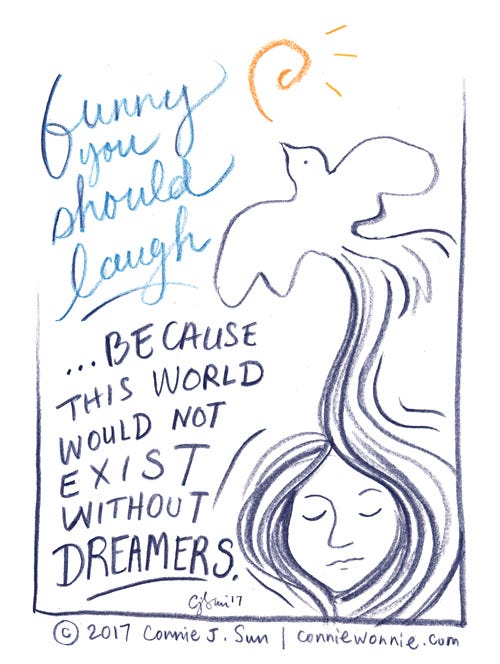 funny
you
should
laugh
...BECAUSE
THIS WORLD
WOULD NOT
EXIST
WITHOUT
DREAMERS.
CJSun '17
© 2017 Connie J. Sun | conniewonnie.com